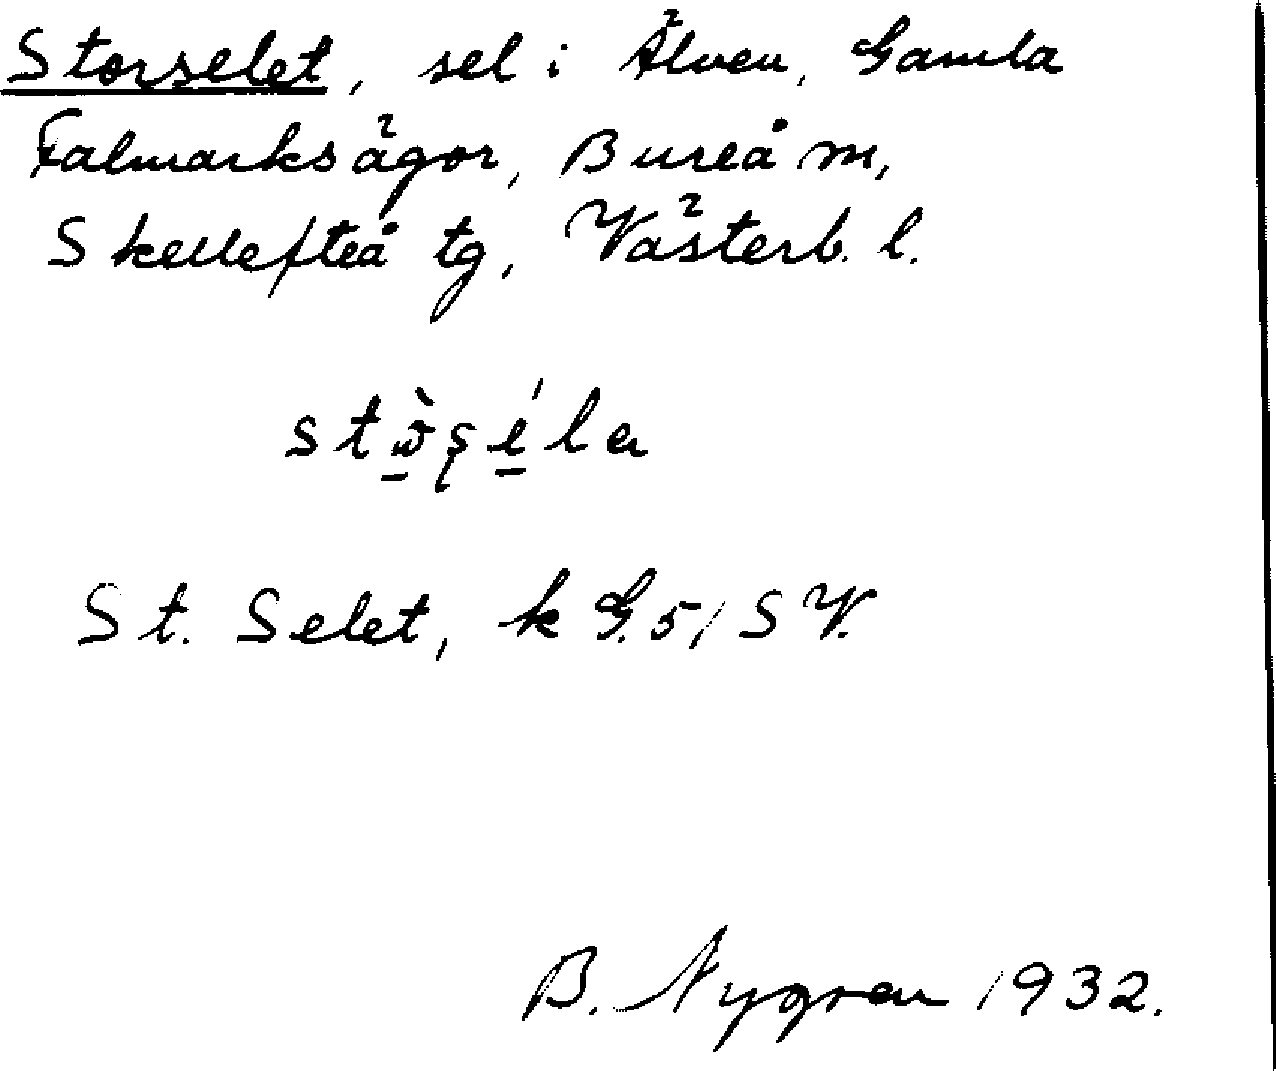 Storselet, sel i Älven, Gamla
Falmarksägor, Bureå m,
Skellefteå tg, Västerb. l.
St. Selet, k G. 5, SV.
B. Nygren 1932.